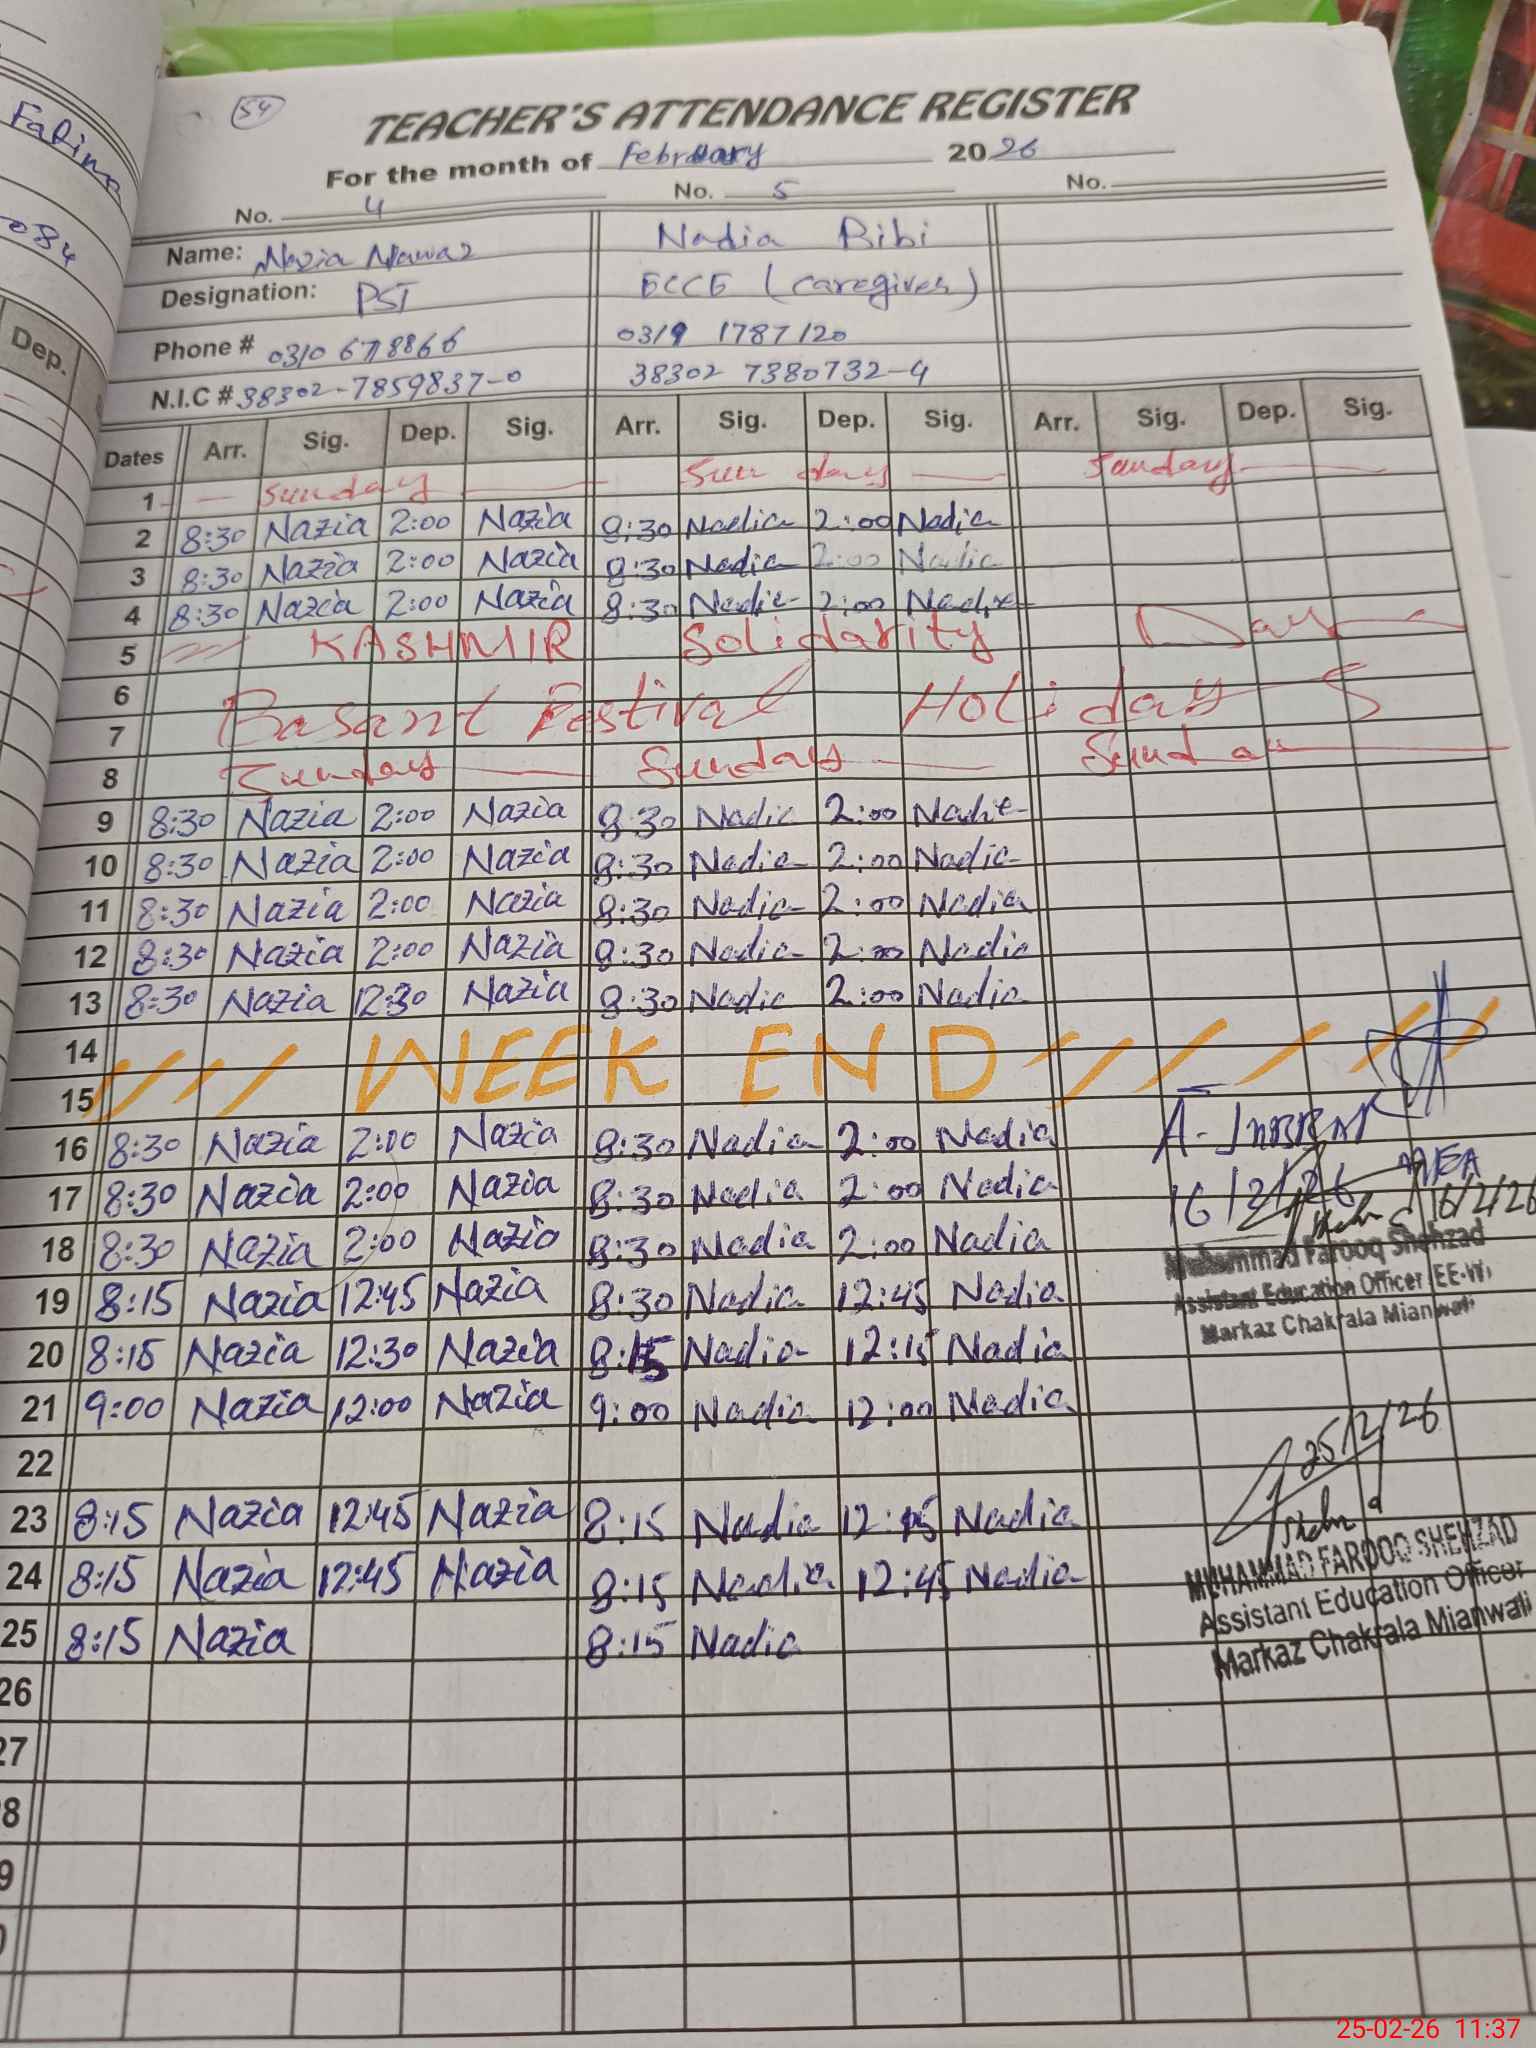 Fatima
-084
Dep.
54
TEACHER'S ATTENDANCE REGISTER
For the month of February 2026
No. 4 No. 5 No.
Name: Nazia Nawaz Nadia Bibi
Designation: PST ECCE (caregiver)
Phone # 0310 678866 0319 1787120
N.I.C # 38302-7859837-0 38302 7380732-4
Dates Arr. Sig. Dep. Sig. Arr. Sig. Dep. Sig. Arr. Sig. Dep. Sig.
1 Sunday Sunday Sunday
2 8:30 Nazia 2:00 Nazia 8:30 Nadia 2:00 Nadia
3 8:30 Nazia 2:00 Nazia 8:30 Nadia 2:00 Nadia
4 8:30 Nazia 2:00 Nazia 8:30 Nadia 2:00 Nadia
5 KASHMIR Solidarity Day
6
Basant Festival Holidays
7
8 Sunday Sunday Sunday
9 8:30 Nazia 2:00 Nazia 8:30 Nadia 2:00 Nadia
10 8:30 Nazia 2:00 Nazia 8:30 Nadia 2:00 Nadia
11 8:30 Nazia 2:00 Nazia 8:30 Nadia 2:00 Nadia
12 8:30 Nazia 2:00 Nazia 8:30 Nadia 2:00 Nadia
13 8:30 Nazia 12:30 Nazia 8:30 Nadia 2:00 Nadia
14
WEEK END
15
16 8:30 Nazia 2:00 Nazia 8:30 Nadia 2:00 Nadia
17 8:30 Nazia 2:00 Nazia 8:30 Nadia 2:00 Nadia
16/2/26 16/2/26
18 8:30 Nazia 2:00 Nazia 8:30 Nadia 2:00 Nadia
Muhammad Farooq Shehzad
Assistant Education Officer (EE-W)
Markaz Chakrala Mianwali
19 8:15 Nazia 12:45 Nazia 8:30 Nadia 12:45 Nadia
20 8:15 Nazia 12:30 Nazia 8:15 Nadia 12:15 Nadia
21 9:00 Nazia 12:00 Nazia 9:00 Nadia 12:00 Nadia
22
25/2/26
23 8:15 Nazia 12:45 Nazia 8:15 Nadia 12:45 Nadia
24 8:15 Nazia 12:45 Nazia 8:15 Nadia 12:45 Nadia
MUHAMMAD FAROOQ SHEHZAD
Assistant Education Officer
Markaz Chakrala Mianwali
25 8:15 Nazia 8:15 Nadia
26
27
8
9
25-02-26 11:37